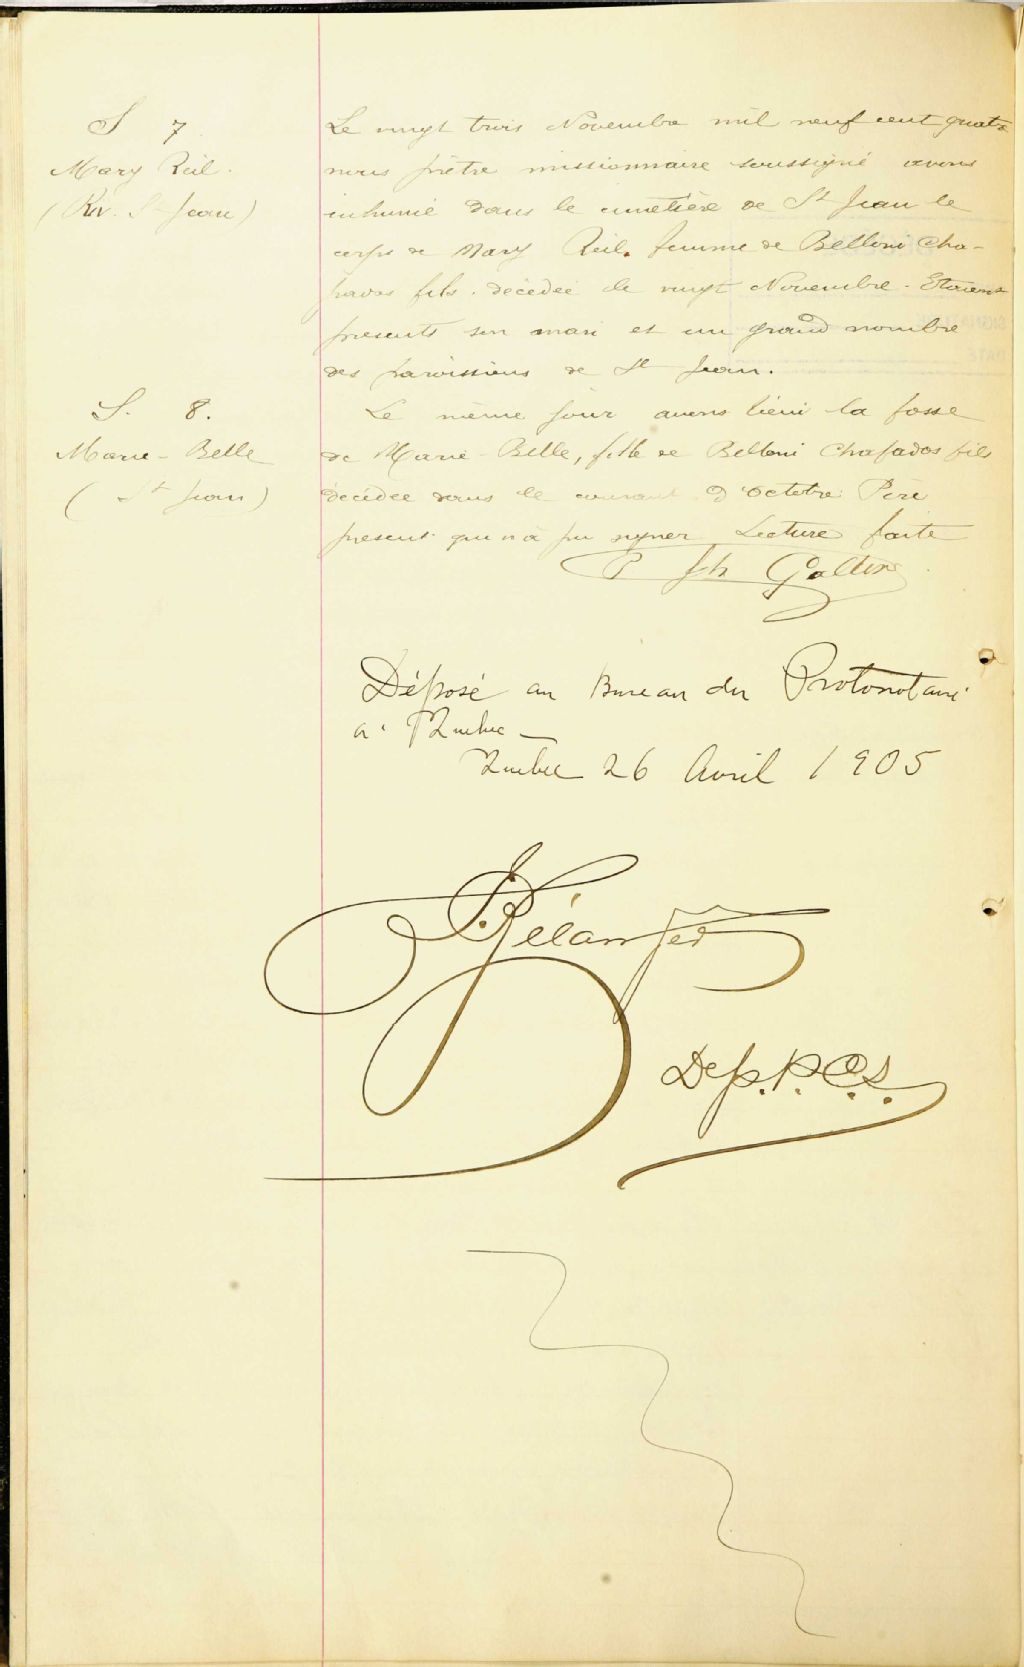 S 7
Mary Riel.
(Riv. St Jean)
Le vingt trois Novembre mil neuf cent quatre
nous prêtre missionnaire soussigné avons
inhumé dans le cimetière de St Jean le
corps de Mary Riel. femme de Belloni Cha-
pados fils. décédée le vingt Novembre. Etaient
presents son mari et un grand nombre
des paroissiens de St Jean.
S. 8.
Marie-Belle
(St Jean)
Le même jour avons béni la fosse
de Marie-Belle, fille de Belloni Chapados fils
décédée dans le courant d'octobre Père
present qui n'a pu signer Lecture faite
P
Déposé au Bureau du Protonotaire
a Québec —
Québec 26 Avril 1905
Bélanger
Dep. P. C. S.